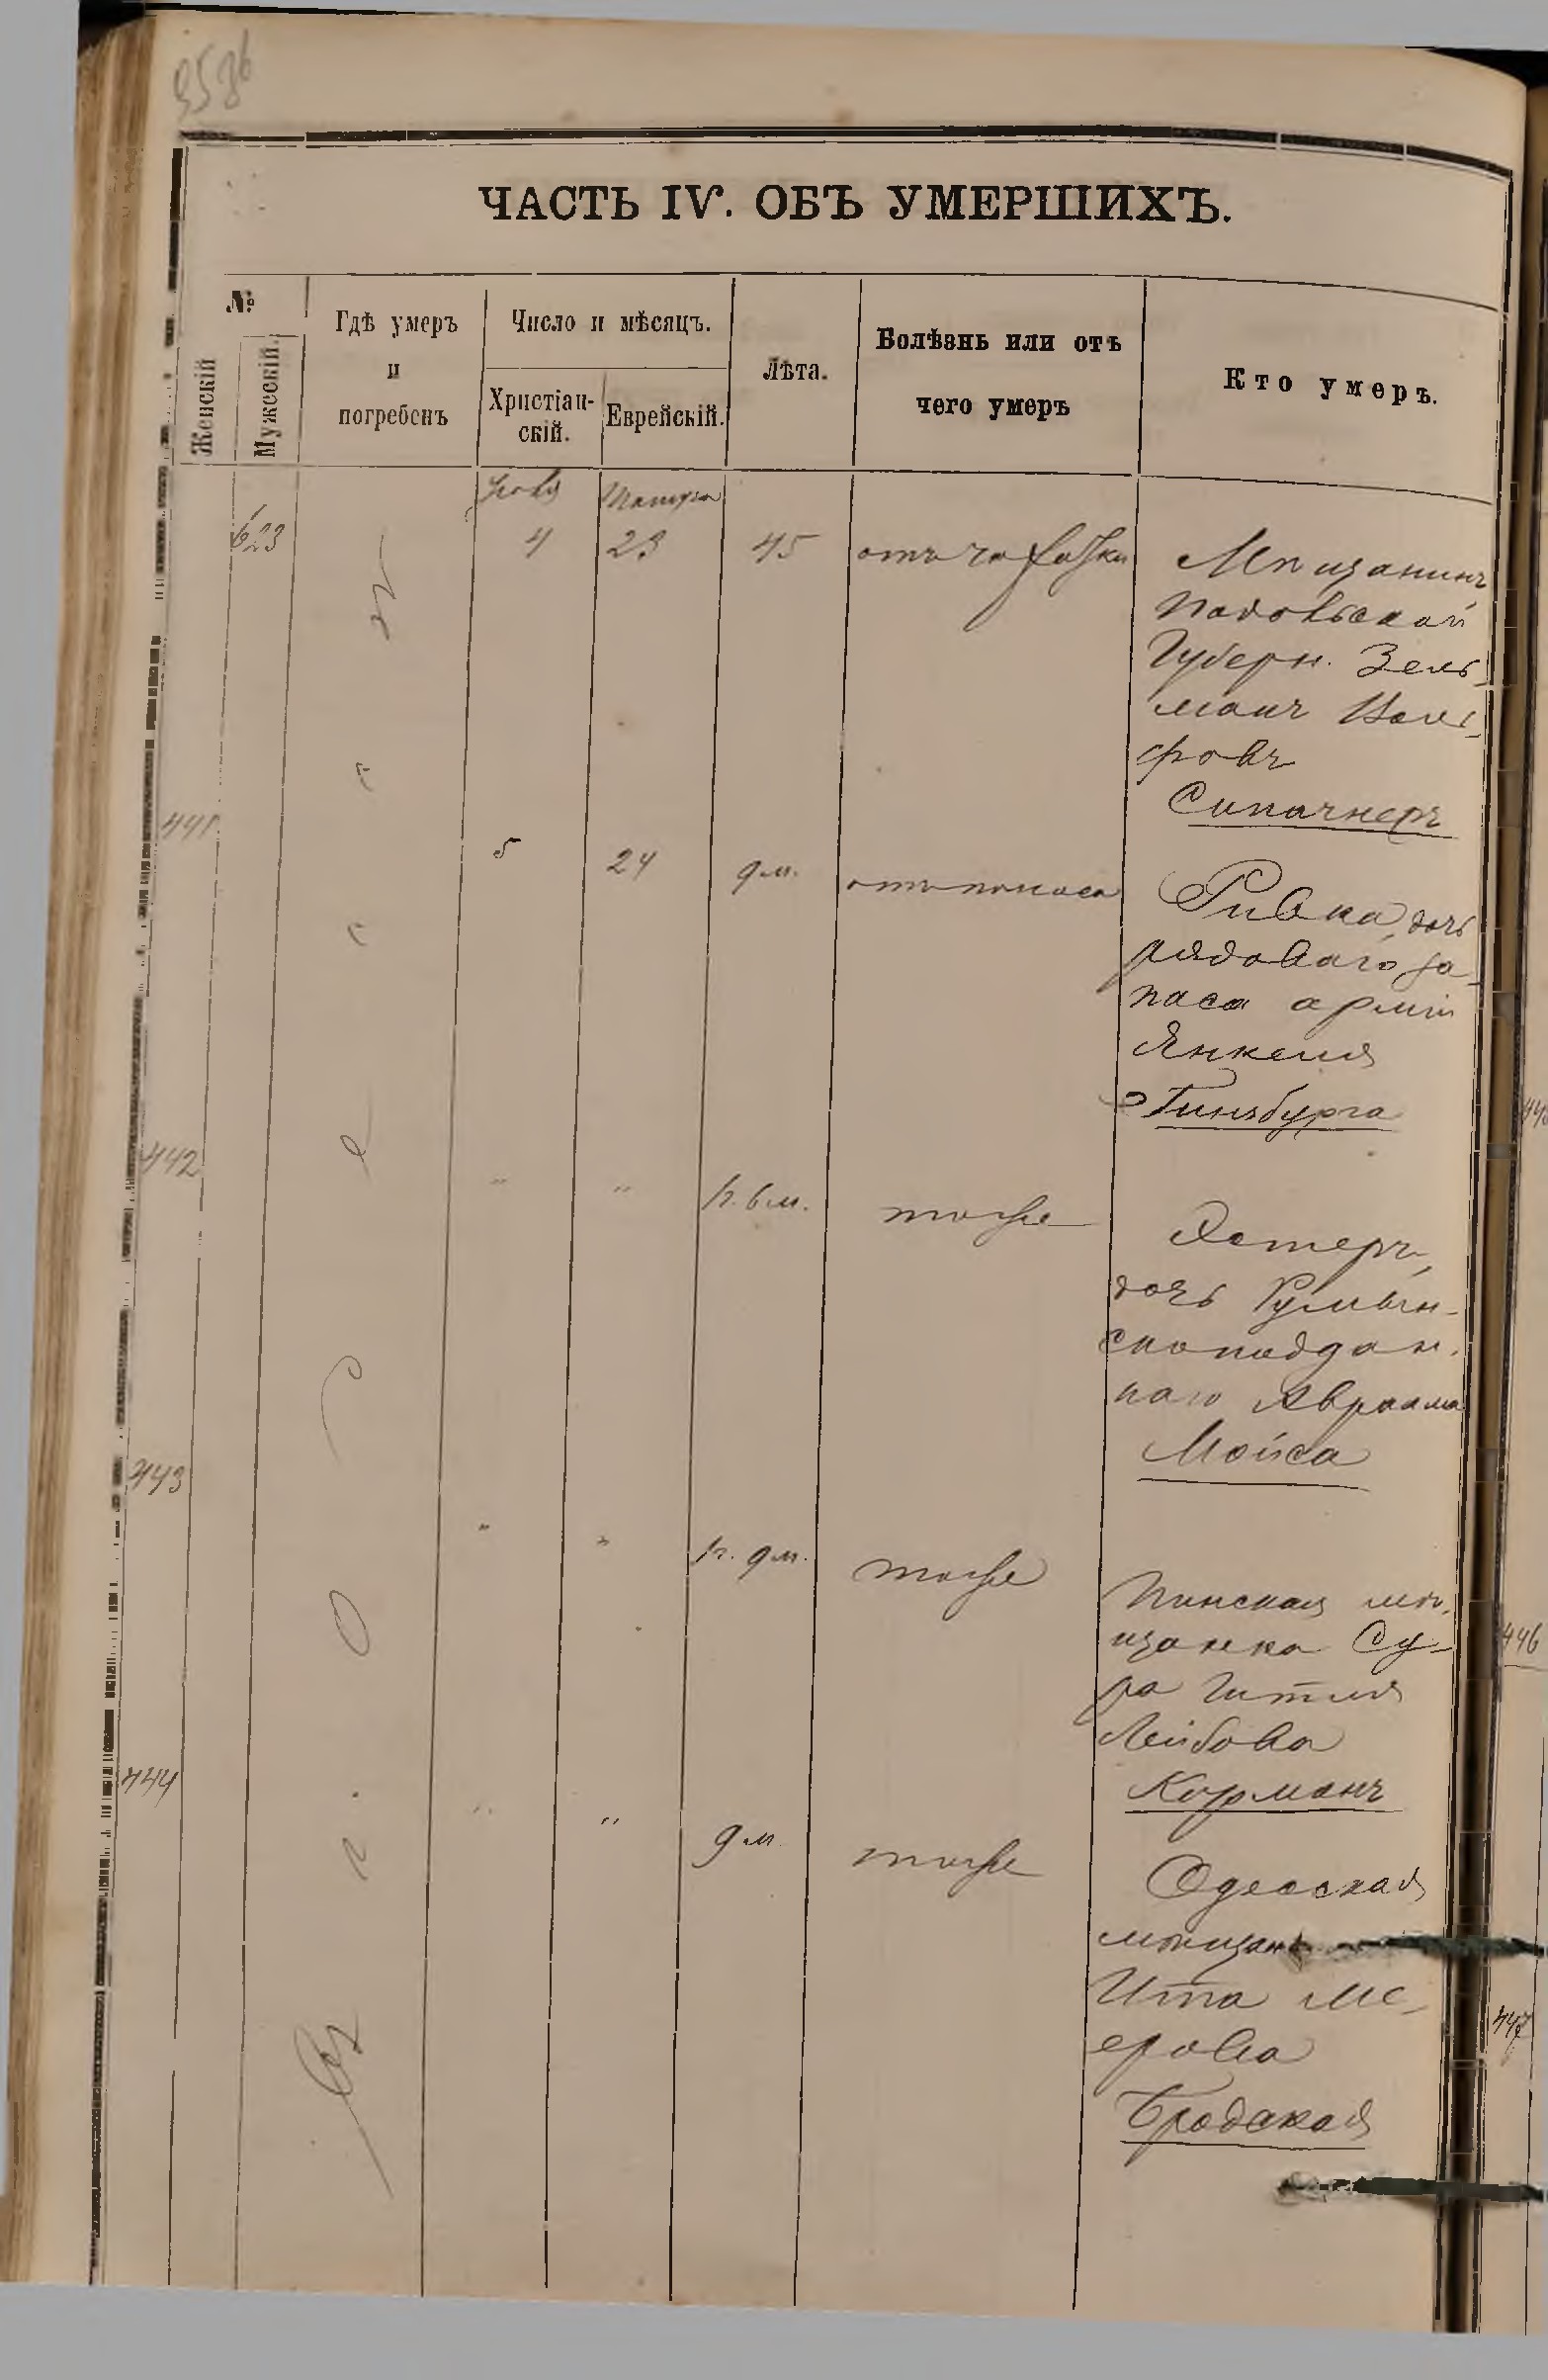 ЧАСТЬ IV. ОБЪ УМЕРШИХЪ.
№
Женскій
Мужескій.
Гдѣ умеръ
и
погребенъ
Число и мѣсяцъ.
Христіан-
скій.
Еврейскій.
Лѣта.
Болѣзнь или отъ
чего умеръ
Кто умеръ.
Іюля
623 4 23 45 отъ чахотки
Мѣщанинъ
Подольской
Губерн. Зель-
манъ Воль-
фовъ
441 5 24 9 м. отъ поноса
Ривка, дочь
рядоваго за-
паса арміи
Янкеля
Гинзбурга
442 " " 1 г. 6 м. тоже
Эстеръ,
дочь Румын-
скоподдан-
наго Авраама
Мойса
443 " " 1 г. 9 м. тоже
Пинская мѣ-
щанка Су-
ра Гитля
Лейбова
Корманъ
444 " " 9 м. тоже
Одесская
Ита Ме-
ерова
Бродская
446
447